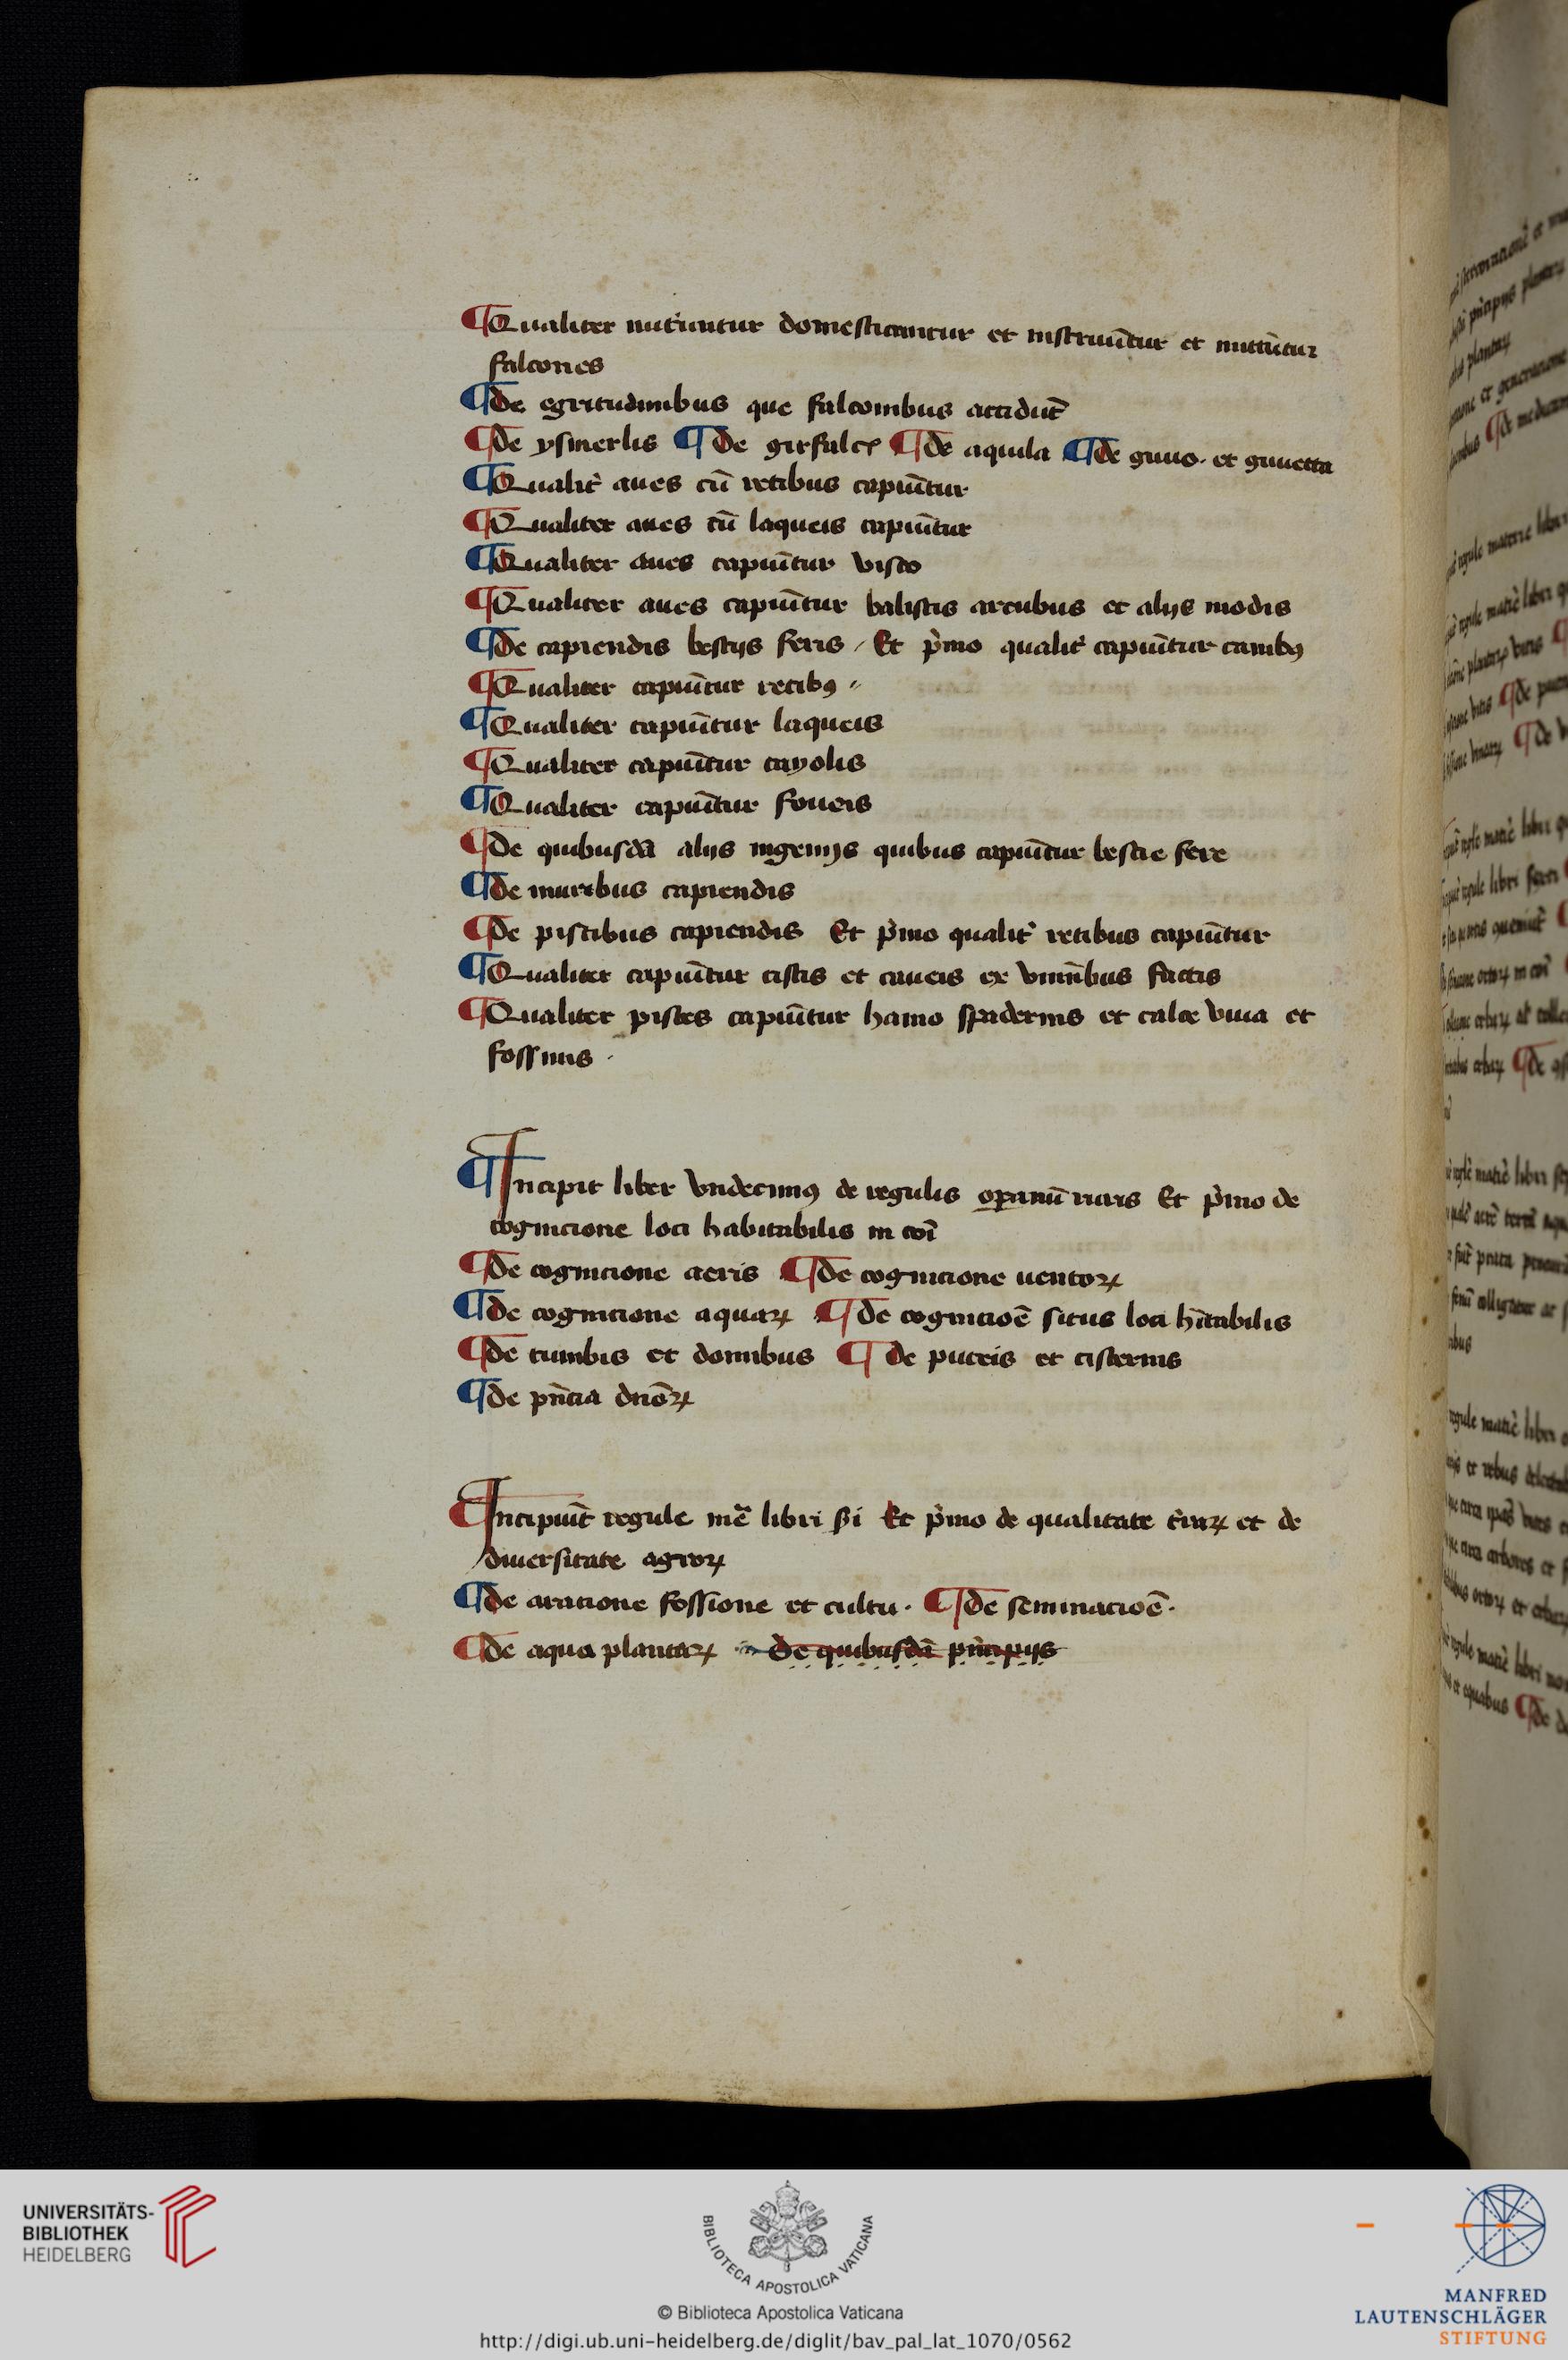 ¶Qualiter nutriuntur domesticantur et instruūtur et mittūtur
falcones
¶de egritudinibus que falconibus accidūt
¶de ysmerlis ¶de girfalce ¶de aquila ¶de guuo · et guuetta
¶Qualit̉ aues cū retibus capiūtur
¶Qualiter aues cū laqueis capiūtur
¶Qualiter aues capiūtur visco
¶Qualiter aues capiūtur balistis arcubus et alijs modis
¶de capiendis bestijs feris / Et p̉mo qualit̉ capiūtur canibꝰ
¶Qualiter capiūtur retibꝰ //
¶Qualiter capiūtur laqueis
¶Qualiter capiūtur cayolis
¶Qualiter capiūtur foueis
¶de quibusdā alijs ingenijs quibus capiūtur bestie fere
¶de muribus capiendis
¶de piscibus capiendis Et p̉mo qualit̉ retibus capiūtur
¶Qualiter capiūtur cistis et caueis ex viminibus factis
¶Qualiter pisces capiūtur hamo spadernis et calce viua et
fossinis ·
¶Incipit liber vndecimꝰ de regulis operationū ruris Et p̉mo de
cognicione loci habitabilis in coī
¶de cognicione aeris ¶de cognicione uentoꝝ
¶de cognicione aquaꝝ ¶de cognicioē situs loci hītabilis
¶de tumbis et domibus ¶de puteis et cisternis
¶de pn̄cia dnōꝝ
¶Incipiūt regule mē libri ßi Et p̉mo de qualitate t̉raꝝ et de
diuersitate agroꝝ
¶de aracione fossione et cultu · ¶de seminacioē ·
¶de aqua plantaꝝ de quibusdā pn̄cipijs
UNIVERSITÄTS-
BIBLIOTHEK
HEIDELBERG
BIBLIOTECA APOSTOLICA VATICANA
© Biblioteca Apostolica Vaticana
http://digi.ub.uni-heidelberg.de/diglit/bav_pal_lat_1070/0562
MANFRED
LAUTENSCHLÄGER
STIFTUNG